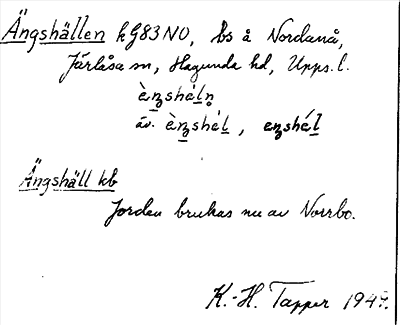 Ängshällen k G83NO, bs å Nordanå,
Järlåsa sn, Hagunda hd, Upps. l.
è̀nshéln
äv. è̀nshél, enshél
Ängshäll kb
Jorden brukas nu av Norrbo.
K.-H. Tapper 1947.